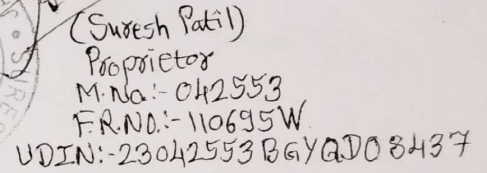 (Suresh Patil)
Proprietor
M.No:-042553
F.R.NO.:-110695W
UDIN:-23042553BGYQDO8437